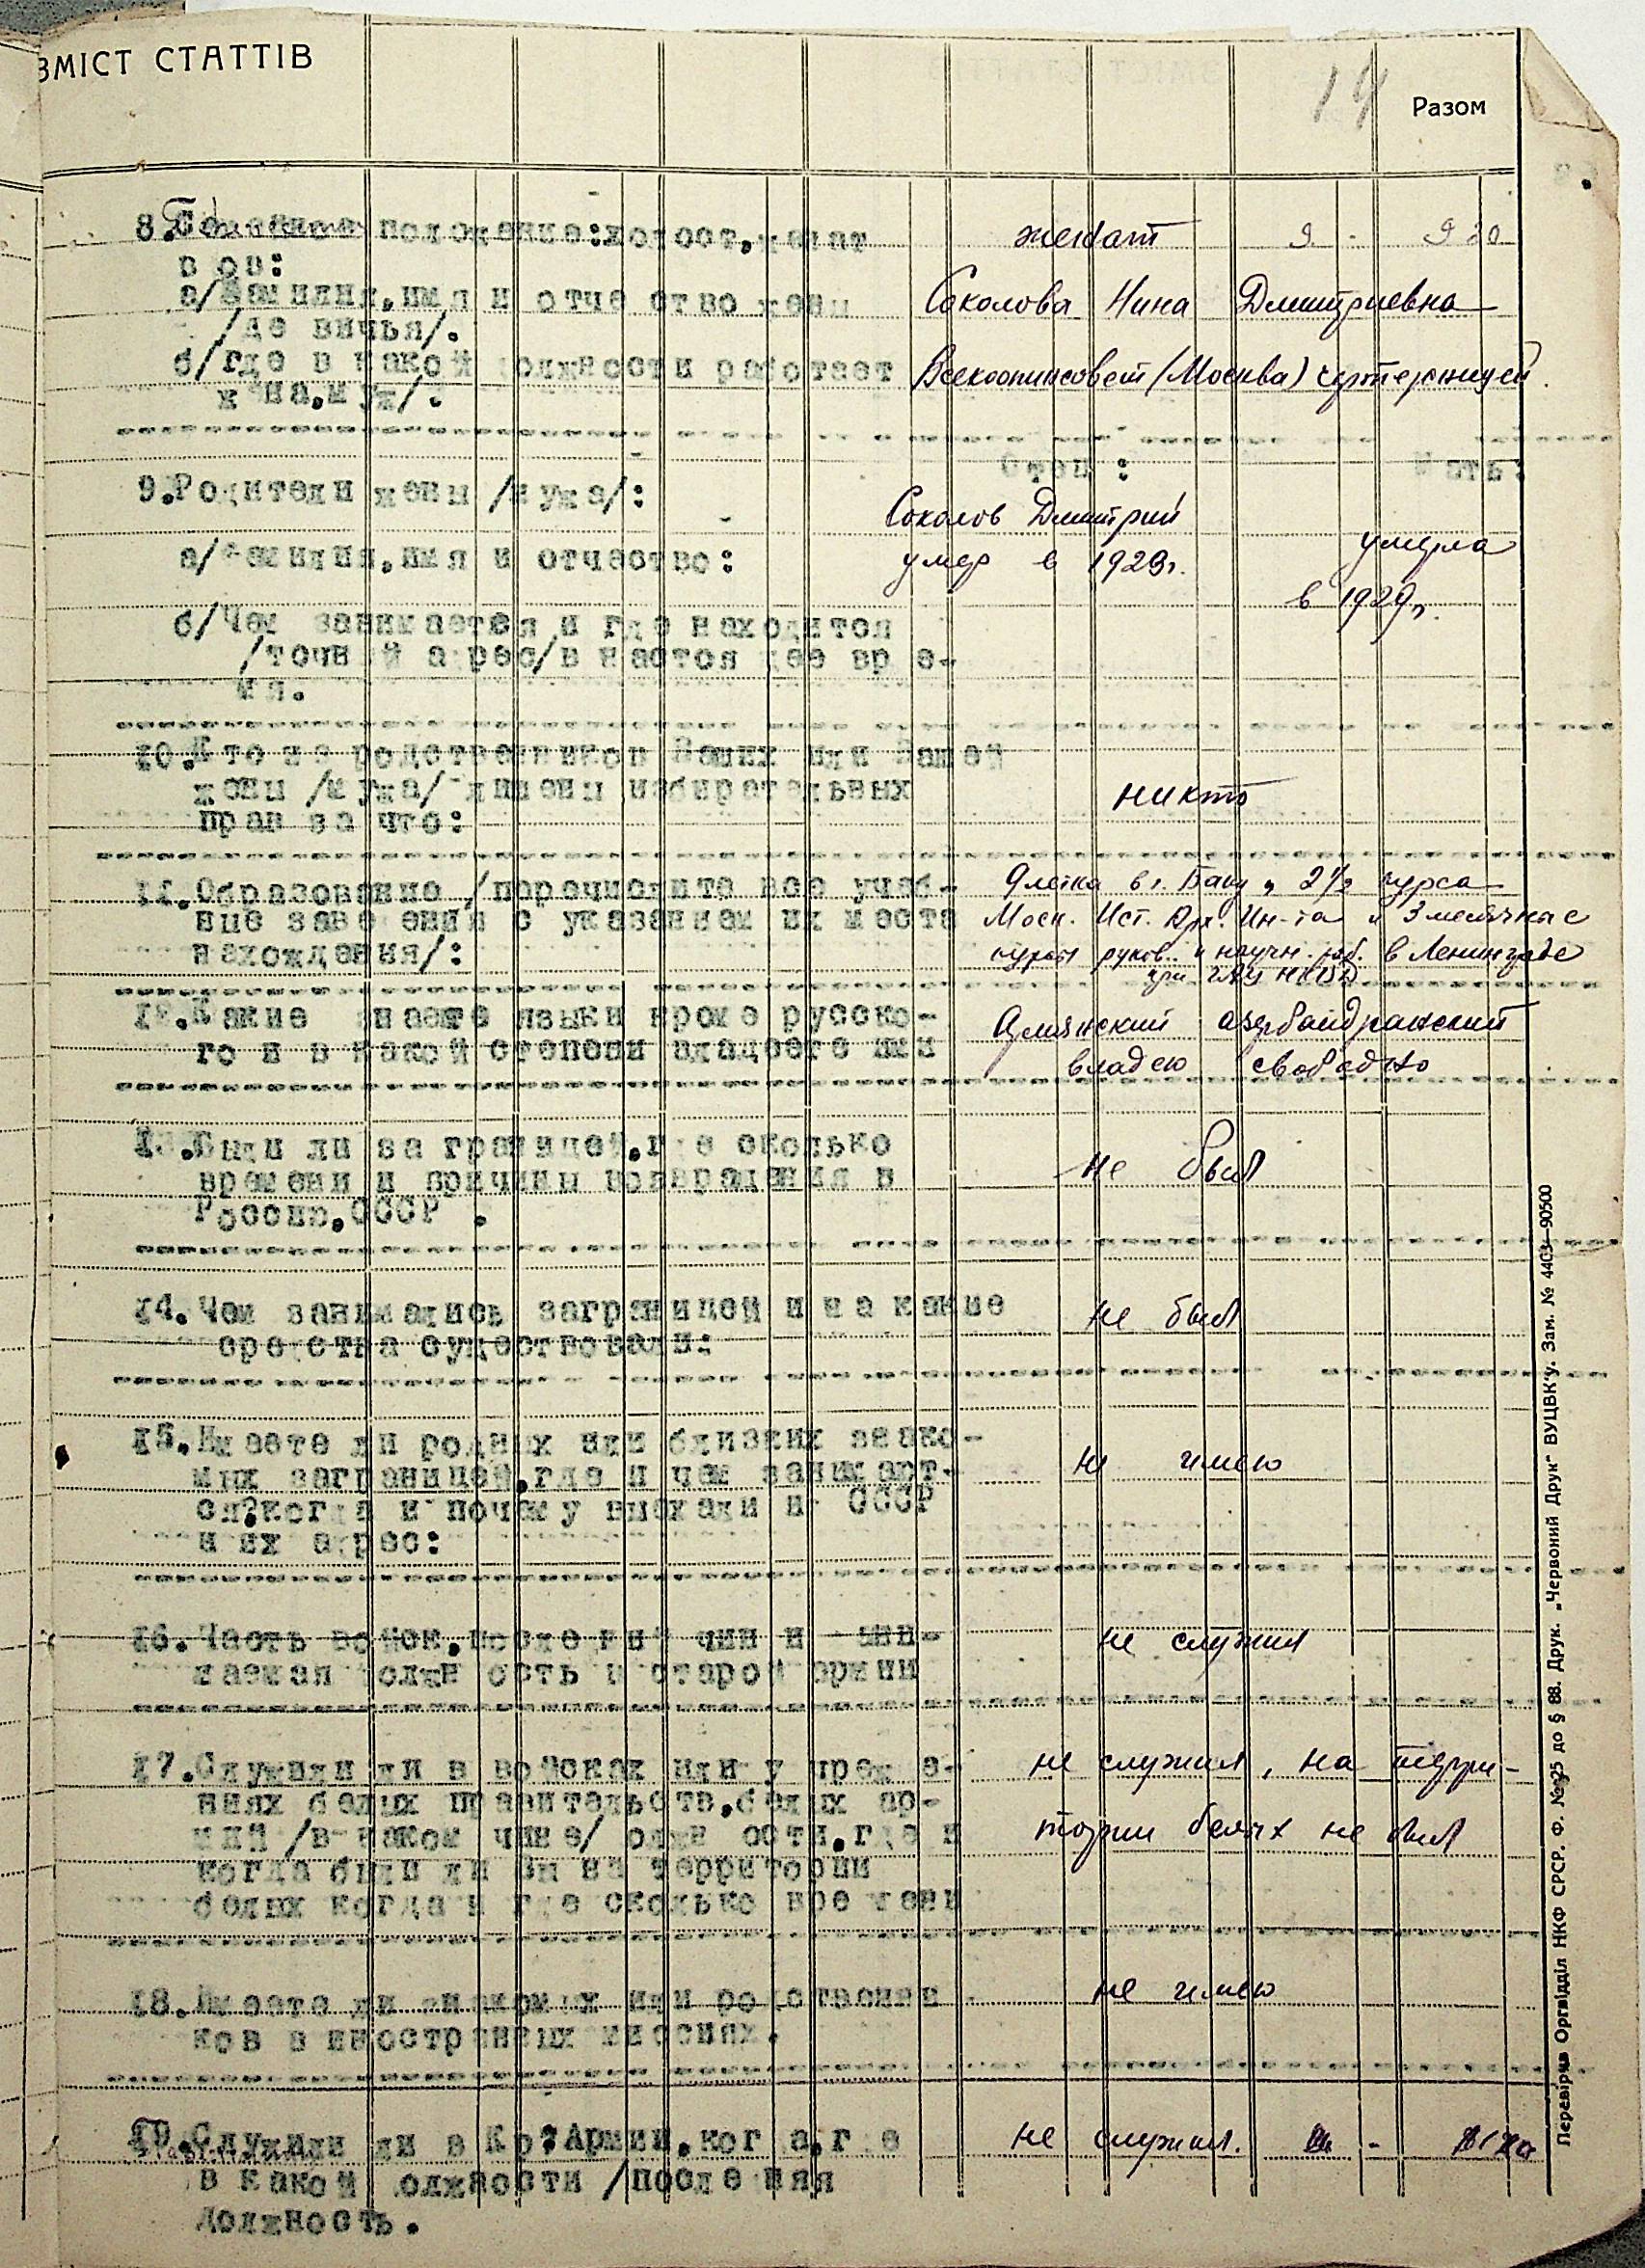 ЗМІСТ СТАТТІВ
Разом
8. положение:холост,женат
вдов:
а/Фамилия,имя и отчество жены
/девичья/.
б/где в какой должности работает
жена,муж/:
женат
Соколова Нина Дмитриевна
Всекоопинсовет (Москва) чертежницей.
Отец: Мать:
9.Родители жены /мужа/:
Соколов Дмитрий
а/Фамилия,имя и отчество:
умер в 1923г.
умерла
в 1929г.
б/Чем занимается и где находится
/точный адрес/в настоящее вре-
мя.
10.Кто из родственников Ваших или Вашей
жены /мужа/ лишены избирательных
прав за что:
никто
11.Образование /перечислите все учеб-
ные заведения с указанием их места
нахождения/:
9летка в г. Баку, 2½ курса
Моск. Ист. Арх. Ин-та и 3 месячные
курсы руков. и научн. раб. в Ленинграде
при ГАУ НКВД
12.Какие знаете языки кроме русско-
го и в какой степени владеете ими
Армянский азербайджанский
владею свободно
13.Были ли за границей,где сколько
времени и причины возвращения в
Россию,СССР .
не был
14.Чем занимались заграницей и на какие
средства существовали:
не был
15.Имеете ли родных или близких знако-
мых заграницей,где и чем занимают-
ся?когда и почему выехали из СССР
и их адрес:
не имею
16.Часть войск,последний чин и зани-
маемая должность в старой армии
не служил
17.Служили ли в войсках или учрежде-
ниях белых правительств,белых ар-
мий /в каком чине/ должности,где и
когда были ли Вы на территории
белых когда и где сколько времени
не служил, на терри-
тории белых не был
18.Имеете ли знакомых или родственни-
ков в иностранных миссиях.
не имею
19.Служили ли в Кр.Армии,когда,где
в какой должности /последняя
должность.
не служил.
Перевірив Оргвідділ НКФ СРСР. Ф. №25 до § 88. Друк. „Червоний Друк" ВУЦВК'у. Зам. № 4403—90500